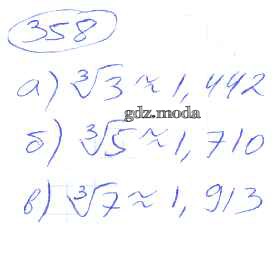 358
а) ∛3 ≈ 1,442
gdz.moda
б) ∛5 ≈ 1,710
в) ∛7 ≈ 1,913